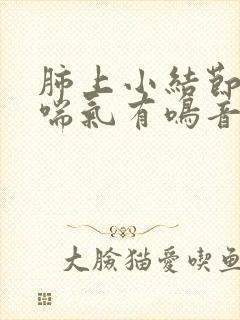 肺上小結節
喘氣有鳴音
大臉猫愛喫魚